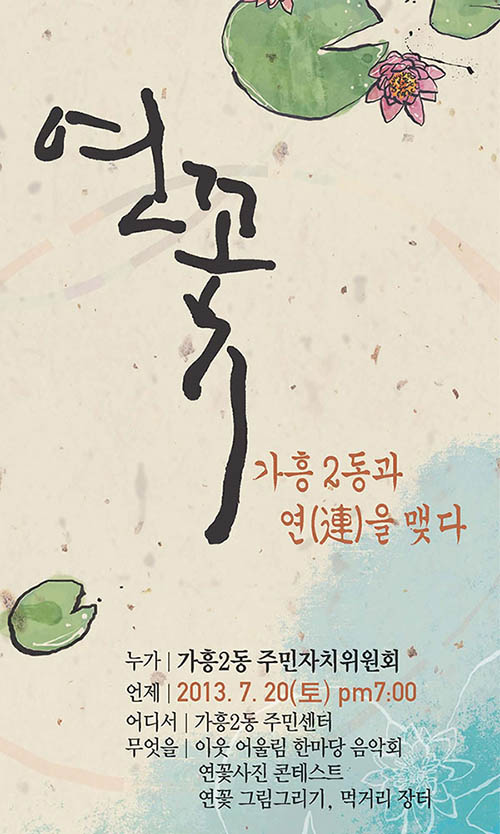 연꽃
가흥2동과
연(連)을 맺다
누가 | 가흥2동 주민자치위원회
언제 | 2013. 7. 20(토) pm7:00
어디서 | 가흥2동 주민센터
무엇을 | 이웃 어울림 한마당 음악회
연꽃사진 콘테스트
연꽃 그림그리기, 먹거리 장터